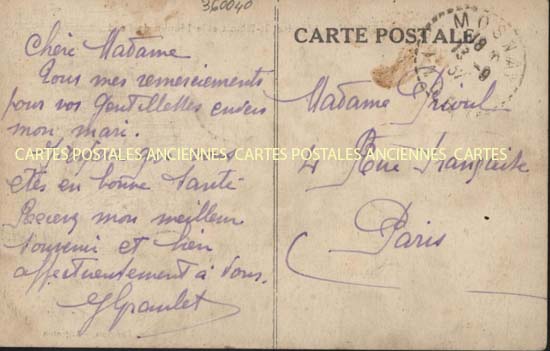 360040
CARTE POSTALE
MOSNA
18
13 -9
Chère Madame
Tous mes remerciements
pour vos gentillesses envers
mon mari.
CARTES POSTALES ANCIENNES CARTES POSTALES ANCIENNES CARTES POSTALES
êtes en bonne santé
Recevez mon meilleur
souvenir et bien
affectueusement à vous.
Madame
4 Rue
Paris